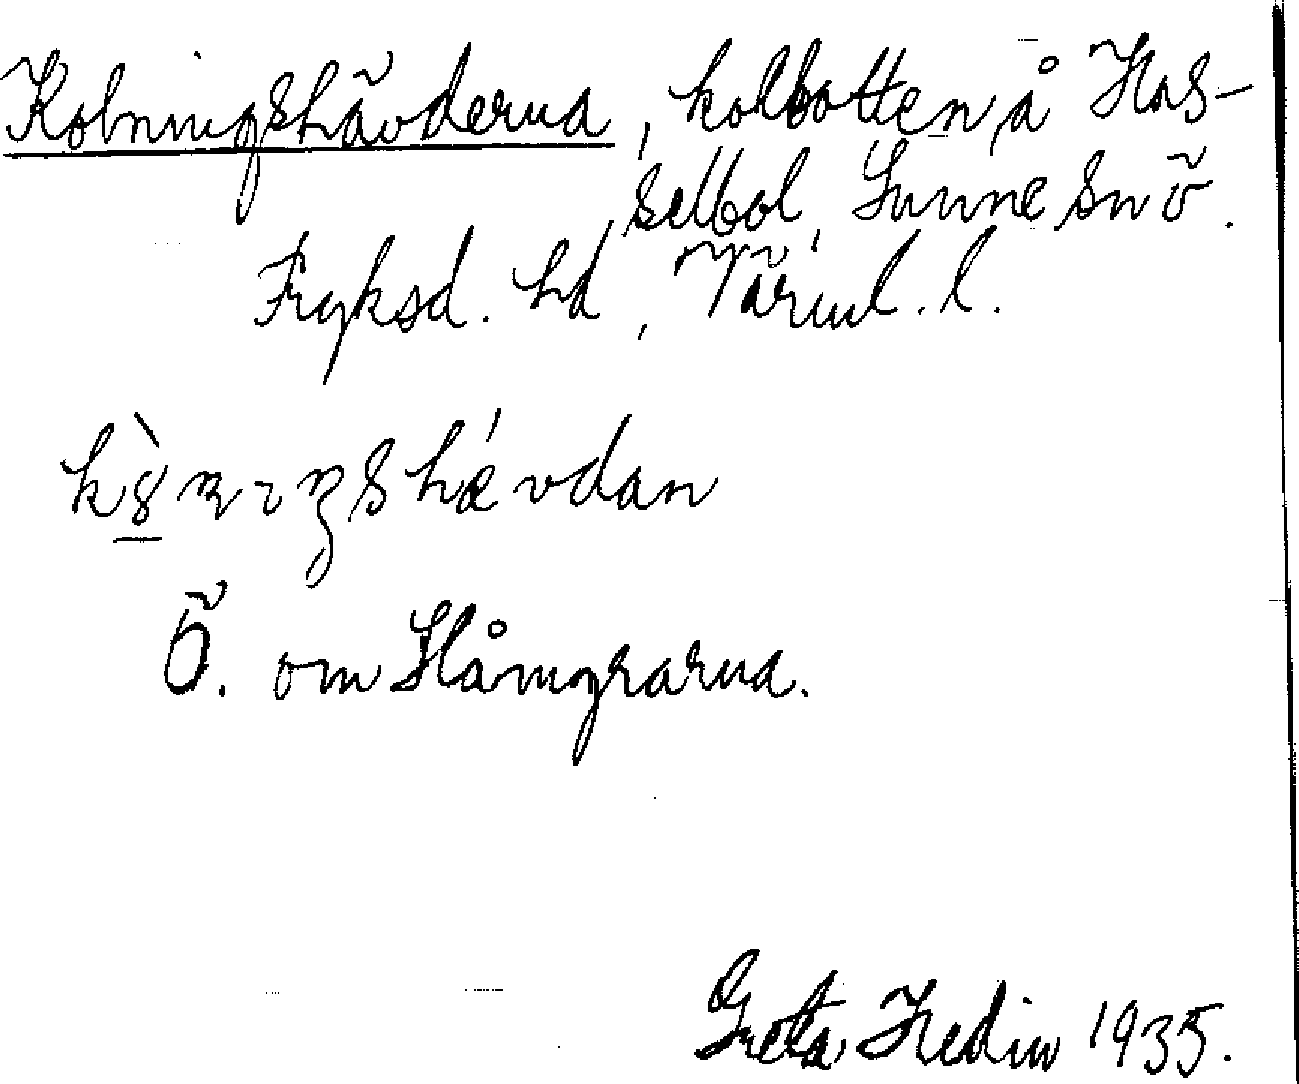 Kolningshävderna, kolbotten å Has-
selbol, Sunne sn ö.
Fryksd. hd, Värml. l.
Ö. om Slåmgrarna.
Greta Hedin 1935.